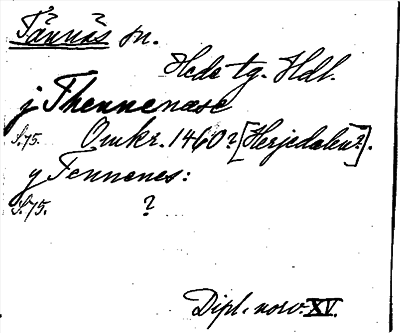 Tännäs sn.
Hede tg. Hdl.
j Thennenæse
S.75. Omkr. 1460? [Herjedalen?].
y Tennenes:
S.75. ?
Dipl. norv. XV.